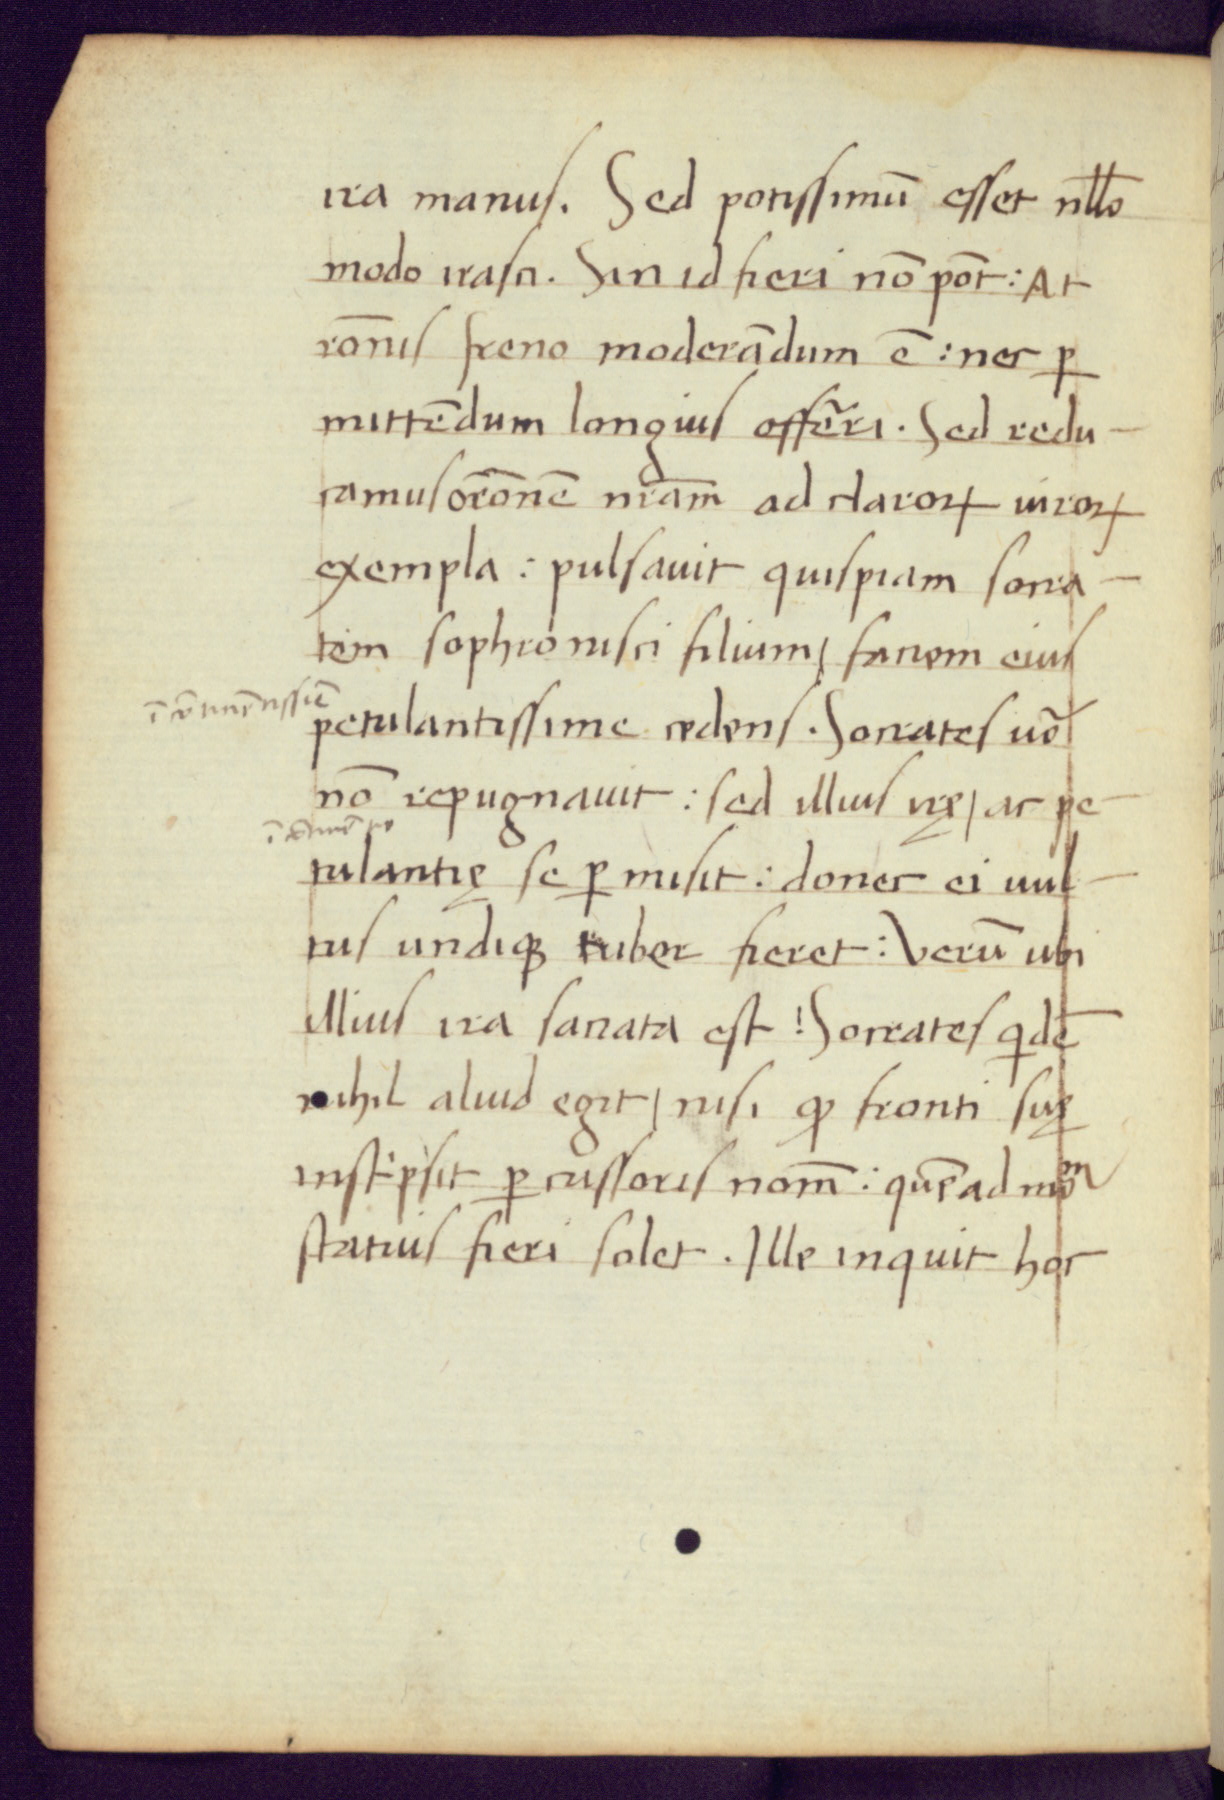 ira manus. Sed potissimū esset nllo
modo irasci. Sin id fieri nō pōt: At
rōnis freno moderādum ē: nec ꝑ
mittēdum longius efferri. Sed redu-
camus orōnē nrām ad claroꝝ uiroꝝ
exempla: pulsauit quispiam socra-
tem sophronisci filium, faciem eius
ī cōtinētissīe
petulantissime cedens. Socrates uō
nō repugnauit: sed illius irę, ac pe-
tulantię se ꝑ misit: donec ei uul-
tus undiqꝫ tuber fieret: Verū ubi
illius ira saciata est! Socrates qͥdē
nihil aliud egit, nisi ꝙ fronti suę
inscͥpsit ꝑ cussoris nom̄: quē ad moͫ
statuis fieri solet. Ille inquit hoc